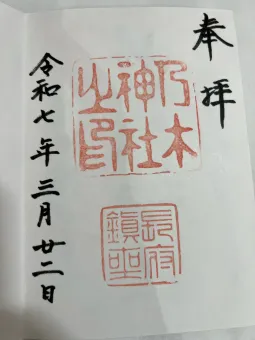 奉拝
乃木
神社
之印
長府
鎮座
令和七年三月廿二日